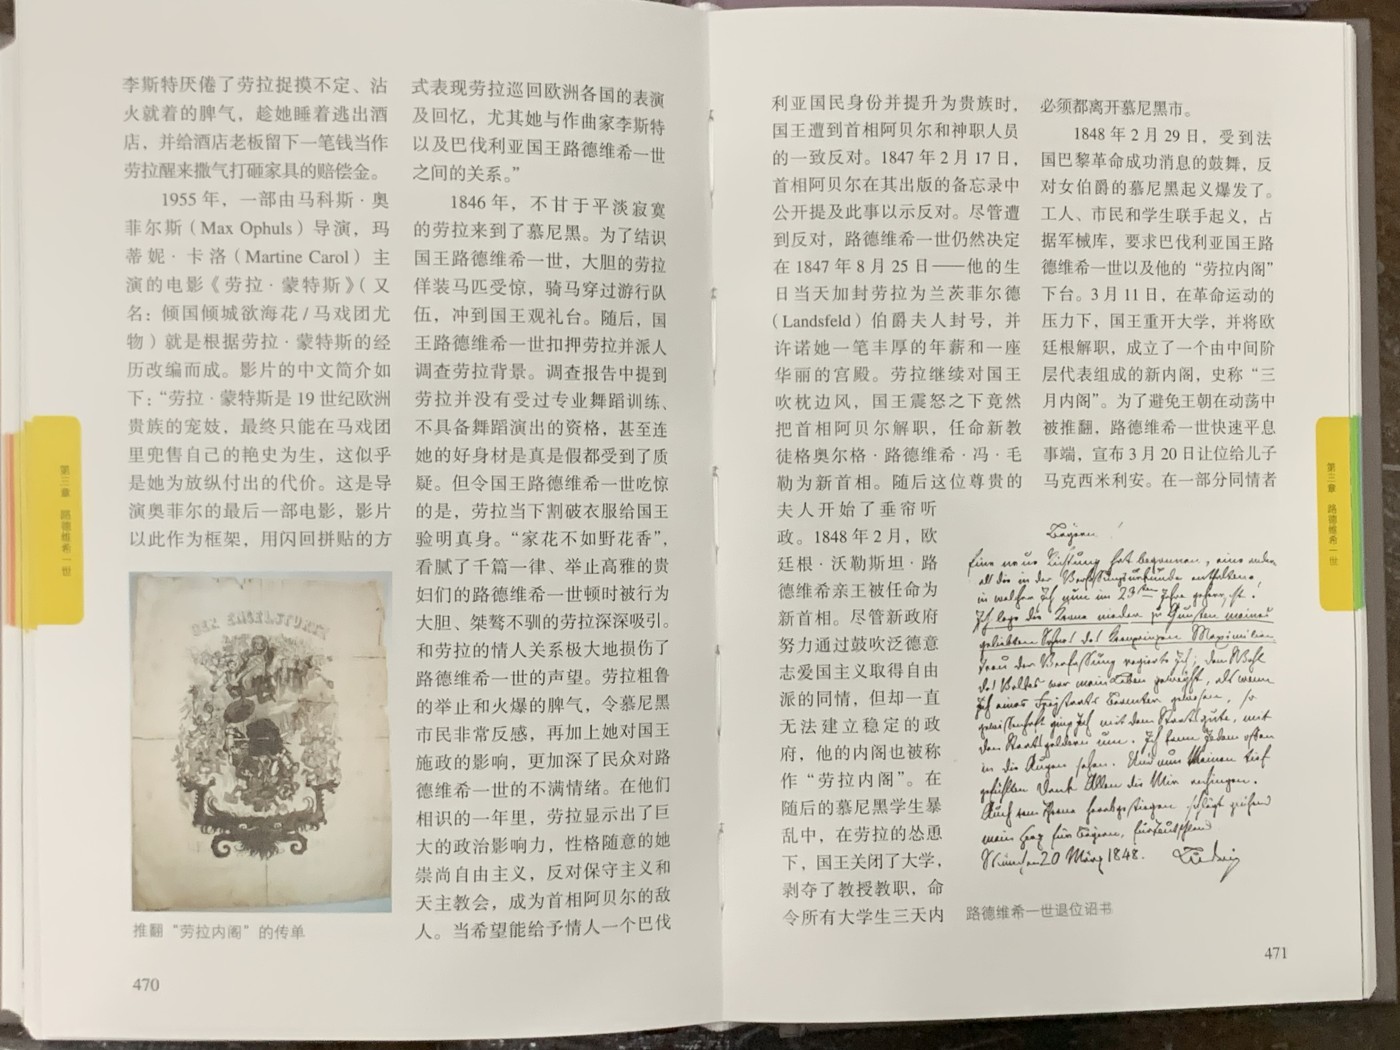 李斯特厌倦了劳拉捉摸不定、沾
火就着的脾气，趁她睡着逃出酒
店，并给酒店老板留下一笔钱当作
劳拉醒来撒气打砸家具的赔偿金。
1955 年，一部由马科斯·奥
菲尔斯（Max Ophuls）导演，玛
蒂妮·卡洛（Martine Carol）主
演的电影《劳拉·蒙特斯》（又
名：倾国倾城欲海花 / 马戏团尤
物）就是根据劳拉·蒙特斯的经
历改编而成。影片的中文简介如
下：“劳拉·蒙特斯是 19 世纪欧洲
贵族的宠妓，最终只能在马戏团
里兜售自己的艳史为生，这似乎
是她为放纵付出的代价。这是导
演奥菲尔的最后一部电影，影片
以此作为框架，用闪回拼贴的方
推翻“劳拉内阁”的传单
470
式表现劳拉巡回欧洲各国的表演
及回忆，尤其她与作曲家李斯特
以及巴伐利亚国王路德维希一世
之间的关系。”
1846 年，不甘于平淡寂寞
的劳拉来到了慕尼黑。为了结识
国王路德维希一世，大胆的劳拉
佯装马匹受惊，骑马穿过游行队
伍，冲到国王观礼台。随后，国
王路德维希一世扣押劳拉并派人
调查劳拉背景。调查报告中提到
劳拉并没有受过专业舞蹈训练、
不具备舞蹈演出的资格，甚至连
她的好身材是真是假都受到了质
疑。但令国王路德维希一世吃惊
的是，劳拉当下割破衣服给国王
验明真身。“家花不如野花香”，
看腻了千篇一律、举止高雅的贵
妇们的路德维希一世顿时被行为
大胆、桀骜不驯的劳拉深深吸引。
和劳拉的情人关系极大地损伤了
路德维希一世的声望。劳拉粗鲁
的举止和火爆的脾气，令慕尼黑
市民非常反感，再加上她对国王
施政的影响，更加深了民众对路
德维希一世的不满情绪。在他们
相识的一年里，劳拉显示出了巨
大的政治影响力，性格随意的她
崇尚自由主义，反对保守主义和
天主教会，成为首相阿贝尔的敌
人。当希望能给予情人一个巴伐
第三章 路德维希一世
利亚国民身份并提升为贵族时，
国王遭到首相阿贝尔和神职人员
的一致反对。1847 年 2 月 17 日，
首相阿贝尔在其出版的备忘录中
公开提及此事以示反对。尽管遭
到反对，路德维希一世仍然决定
在 1847 年 8 月 25 日——他的生
日当天加封劳拉为兰茨菲尔德
（Landsfeld）伯爵夫人封号，并
许诺她一笔丰厚的年薪和一座
华丽的宫殿。劳拉继续对国王
吹枕边风，国王震怒之下竟然
把首相阿贝尔解职，任命新教
徒格奥尔格·路德维希·冯·毛
勒为新首相。随后这位尊贵的
夫人开始了垂帘听
政。1848 年 2 月，欧
廷根·沃勒斯坦·路
德维希亲王被任命为
新首相。尽管新政府
努力通过鼓吹泛德意
志爱国主义取得自由
派的同情，但却一直
无法建立稳定的政
府，他的内阁也被称
作“劳拉内阁”。在
随后的慕尼黑学生暴
乱中，在劳拉的怂恿
下，国王关闭了大学，
剥夺了教授教职，命
令所有大学生三天内
必须都离开慕尼黑市。
1848 年 2 月 29 日，受到法
国巴黎革命成功消息的鼓舞，反
对女伯爵的慕尼黑起义爆发了。
工人、市民和学生联手起义，占
据军械库，要求巴伐利亚国王路
德维希一世以及他的“劳拉内阁”
下台。3 月 11 日，在革命运动的
压力下，国王重开大学，并将欧
廷根解职，成立了一个由中间阶
层代表组成的新内阁，史称“三
月内阁”。为了避免王朝在动荡中
被推翻，路德维希一世快速平息
事端，宣布 3 月 20 日让位给儿子
马克西米利安。在一部分同情者
München 20 März 1848. Ludwig
路德维希一世退位诏书
471
第三章 路德维希一世